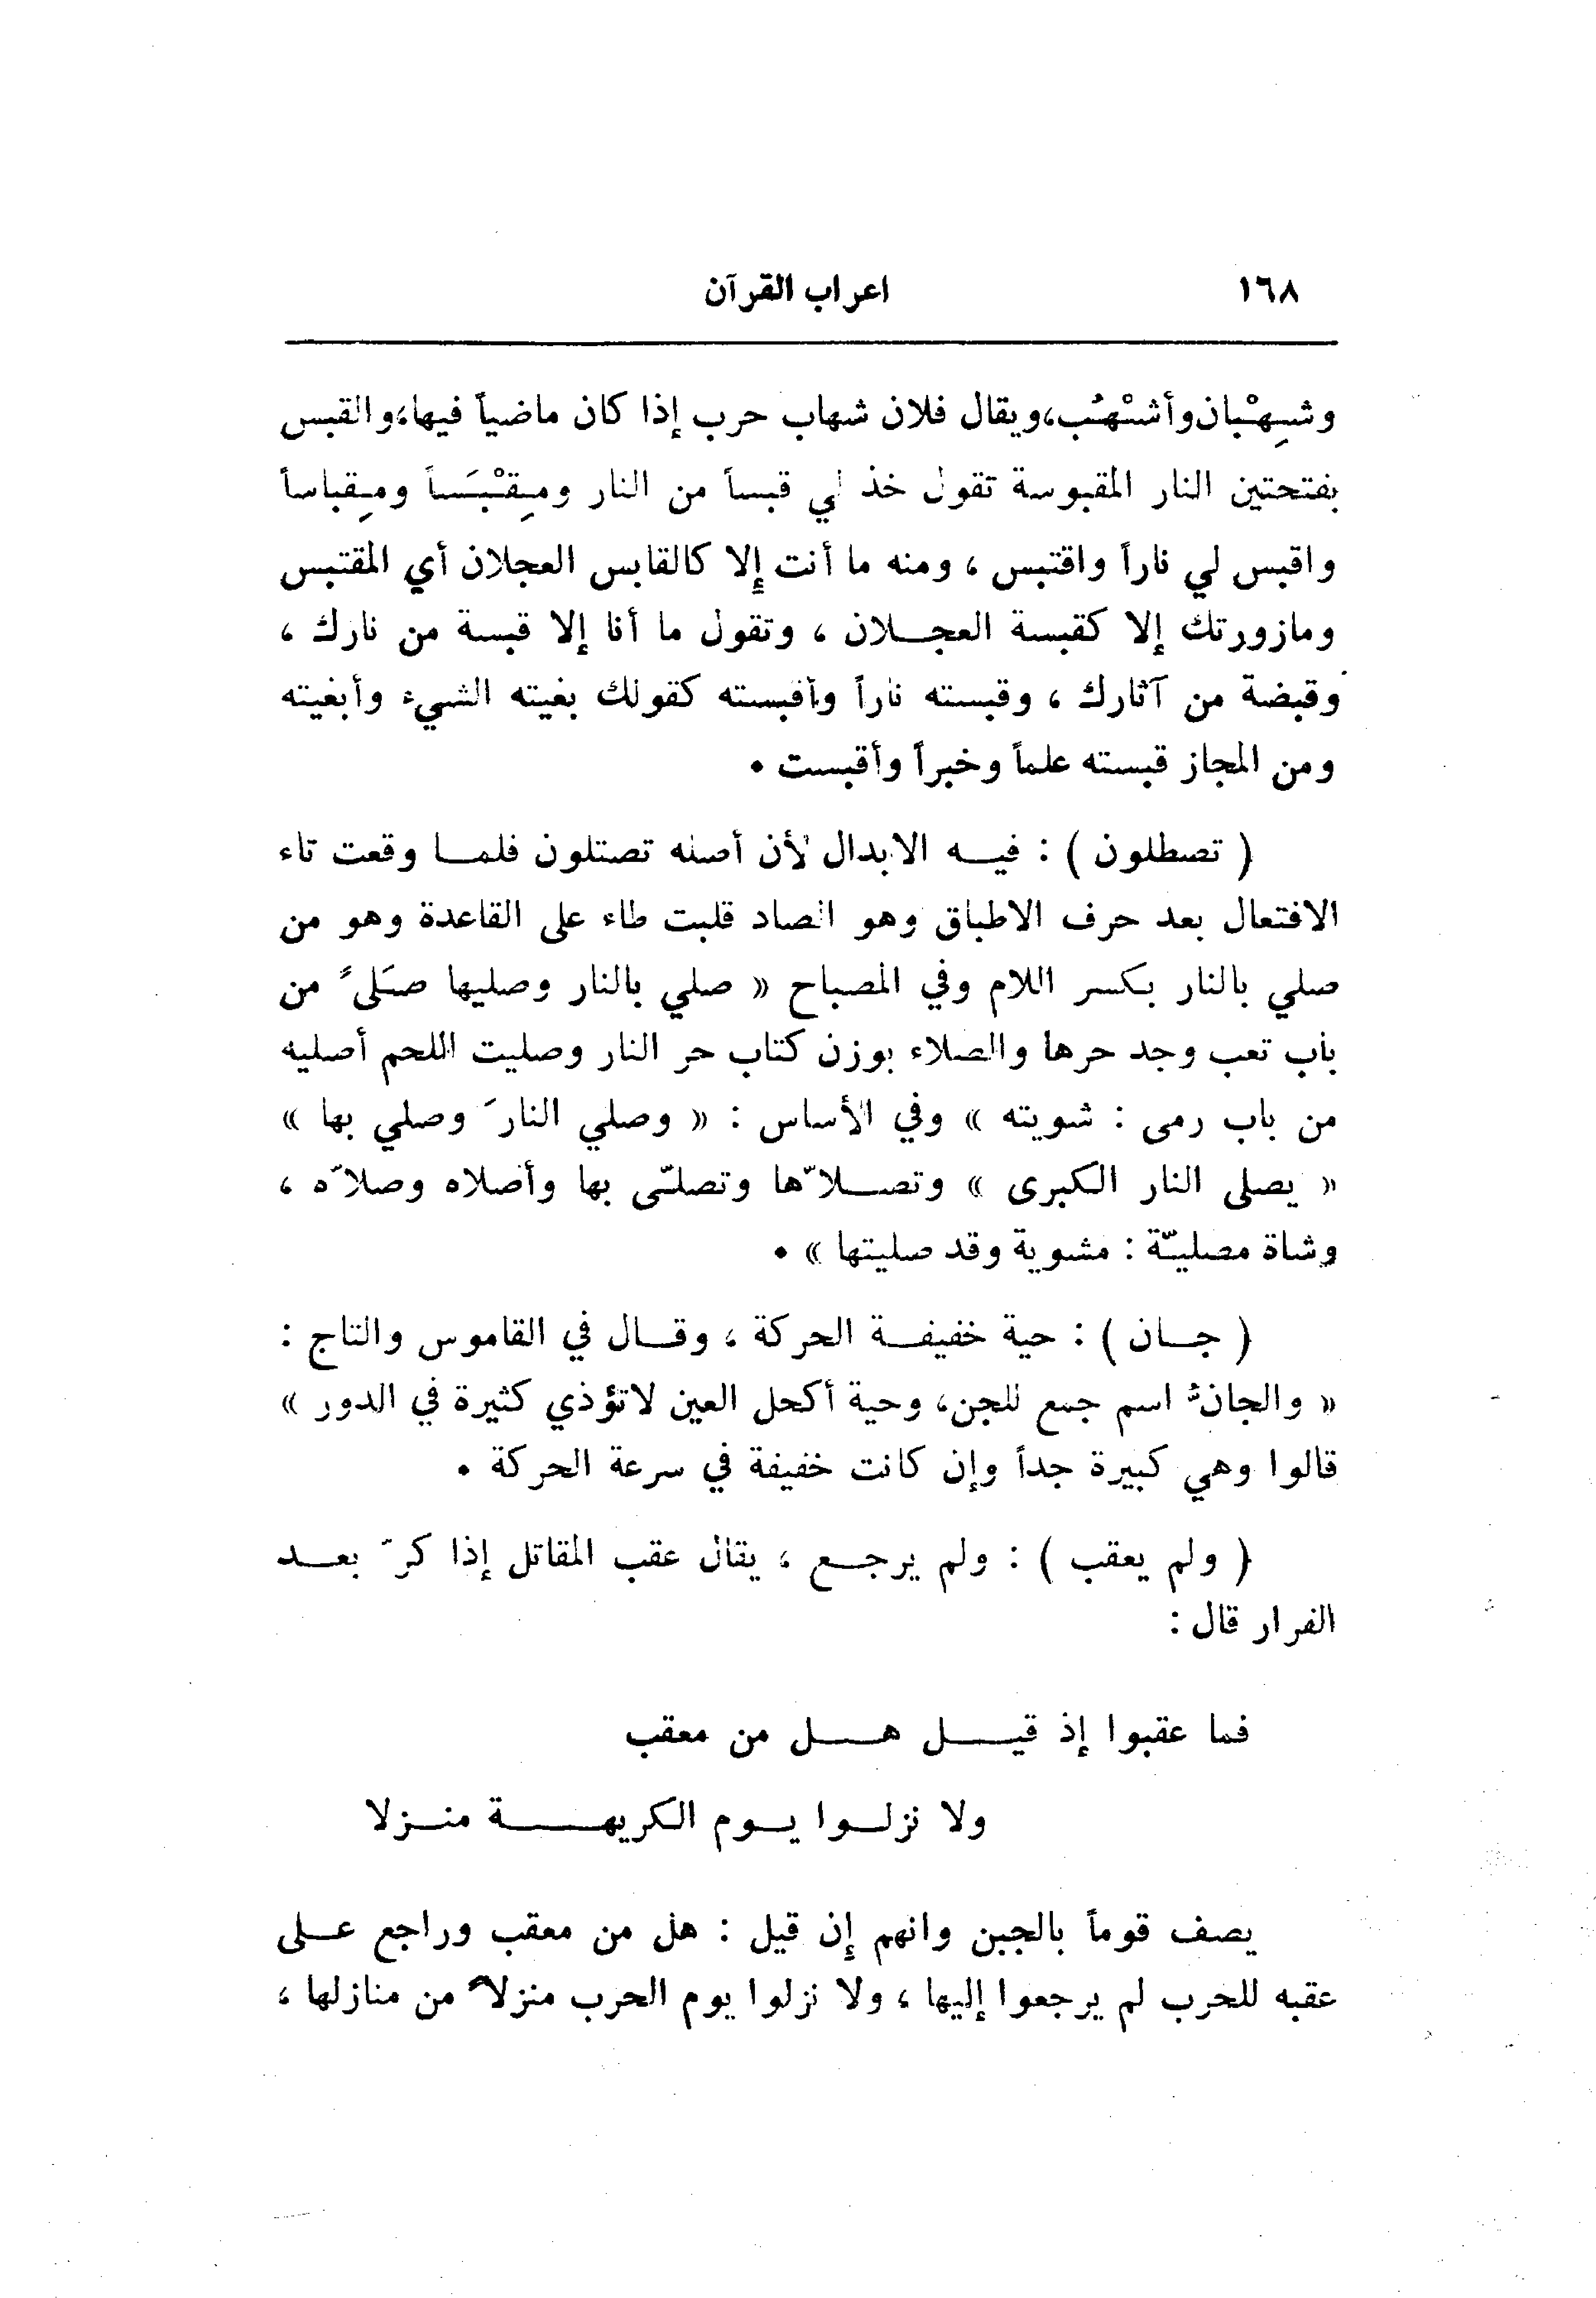 ١٦٨ اعراب القرآن
وشِهْبان وأشْهُب، ويقال فلان شهاب حرب إذا كان ماضياً فيها، والقبس
بفتحتين النار المقبوسة تقول خذ لي قبساً من النار ومِقْبَساً ومِقباساً
واقبس لي ناراً واقتبس ، ومنه ما أنت إلا كالقابس العجلان أي المقتبس
ومازورتك إلا كقبسة العجلان ، وتقول ما أنا إلا قبسة من نارك ،
وقبضة من آثارك ، وقبسته ناراً وأقبسته كقولك بغيته الشيء وأبغيته
ومن المجاز قبسته علماً وخبراً وأقبست .
( تصطلون ) : فيه الابدال لأن أصله تصتلون فلما وقعت تاء
الافتعال بعد حرف الاطباق وهو الصاد قلبت طاء على القاعدة وهو من
صلي بالنار بكسر اللام وفي المصباح « صلي بالنار وصليها صَلىً من
باب تعب وجد حرها والصلاء بوزن كتاب حر النار وصليت اللحم أصليه
من باب رمى : شويته » وفي الأساس : « وصلي النارَ وصلي بها »
« يصلى النار الكبرى » وتصلاّها وتصلّى بها وأصلاه وصلاّه ،
وشاة مصليّة : مشوية وقد صليتها » .
( جان ) : حية خفيفة الحركة ، وقال في القاموس والتاج :
« والجانُّ اسم جمع للجن، وحية أكحل العين لاتؤذي كثيرة في الدور »
قالوا وهي كبيرة جداً وإن كانت خفيفة في سرعة الحركة .
( ولم يعقب ) : ولم يرجع ، يقال عقب المقاتل إذا كرّ بعد
الفرار قال :
فما عقبوا إذ قيل هل من معقب
ولا نزلوا يوم الكريهة منزلا
يصف قوماً بالجبن وانهم إن قيل : هل من معقب وراجع على
عقبه للحرب لم يرجعوا إليها ، ولا نزلوا يوم الحرب منزلاً من منازلها ،